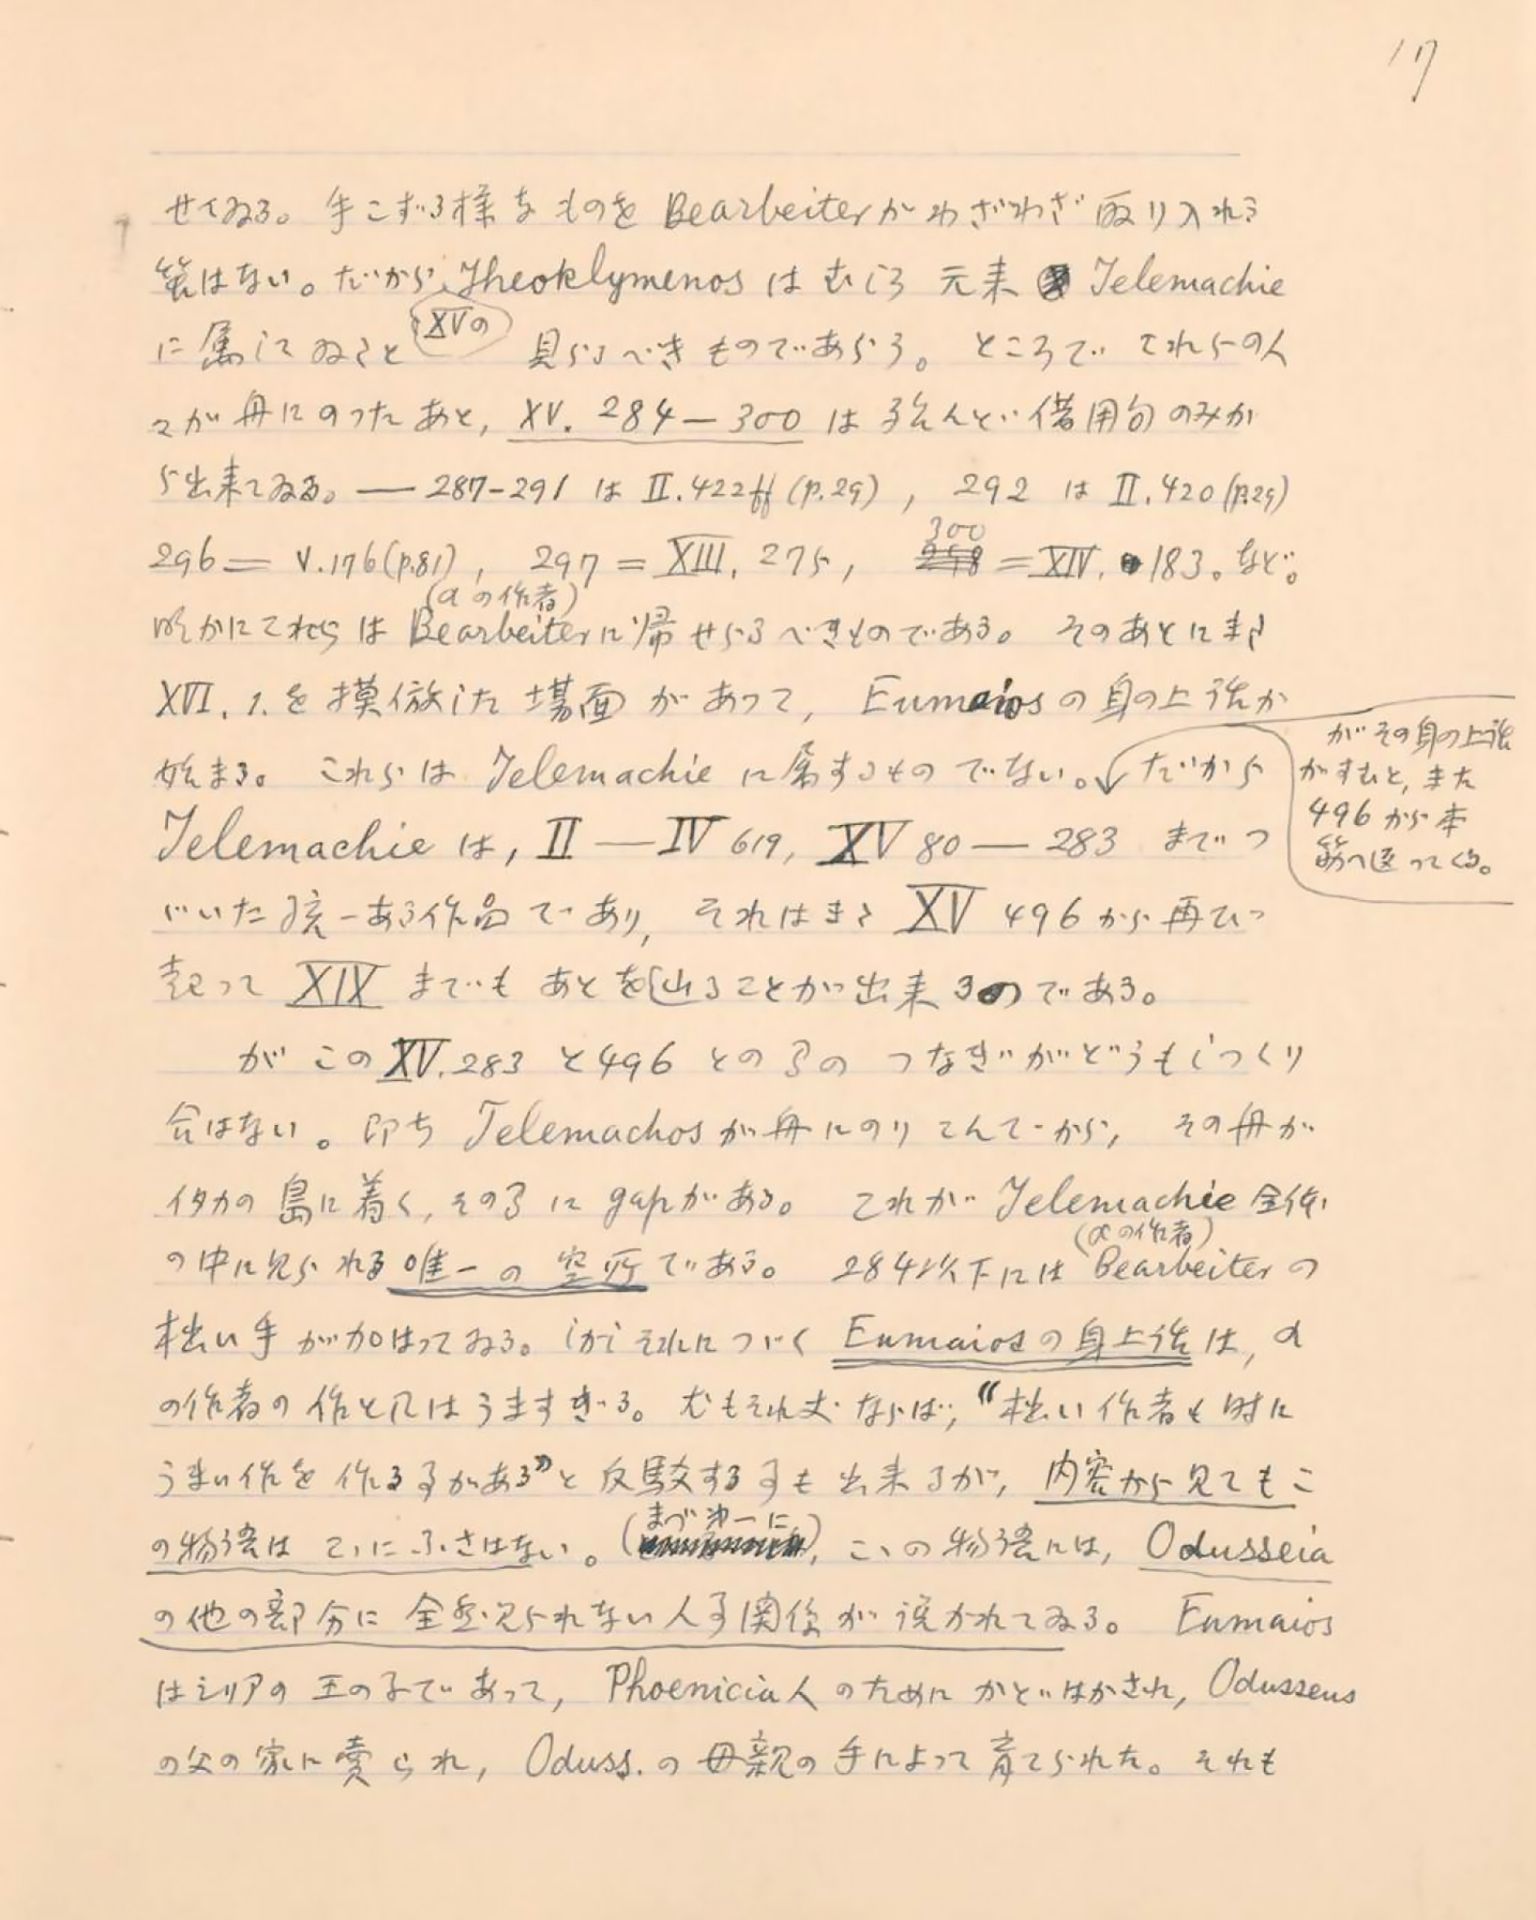 17
せてゐる。手こずる様なものを Bearbeiter がわざわざ取り入れる
筈はない。だから Theoklymenos はむしろ元来 Telemachie
に属してゐたと XVの 見らるべきものであらう。ところでこれらの人
々が舟にのったあと, XV. 284—300 は殆んど借用句のみか
ら出来てゐる。— 287-291 は II.422ff (p.29), 292 は II.420 (p.29)
296 = V.176 (p.81), 297 = XIII. 275, 300 = XIV. 183。など。
(αの作者)
明かにこれらは Bearbeiter に帰せらるべきものである。そのあとにまた
XVI. 1. を摸倣した場面があって, Eumaios の身の上話が
始まる。これらは Telemachie に属するものでない。だから
がその身の上話
がすむと, また
496 から本
筋へ返ってくる。
Telemachie は, II — IV 619, XV 80 — 283 までつ
づいた統一ある作品であり, それはまた XV 496 から再び
起って XIX までもあとを辿ることが出来るのである。
がこの XV. 283 と 496 との間のつなぎがどうもしっくり
合はない。即ち Telemachos が舟にのりこんでから, その舟が
イタカの島に着く, その間に gap がある。これが Telemachie 全体
の中に見られる唯一の空所である。284以下には Bearbeiter の
(αの作者)
拙い手が加はってゐる。しかしそれにつづく Eumaios の身上話は, α
の作者の作としてはうますぎる。尤もそれ丈ならば, “拙い作者も時に
うまい作を作る事がある”と反駁する事も出来るが, 内容から見てもこ
の物語はこゝにふさはない。(まづ第一に), こゝの物語には, Odusseia
の他の部分に全然見られない人事関係が説かれてゐる。Eumaios
はシリアの王の子であって, Phoenicia 人のためにかどはかされ, Odusseus
の父の家に売られ, Oduss. の母親の手によって育てられた。それも